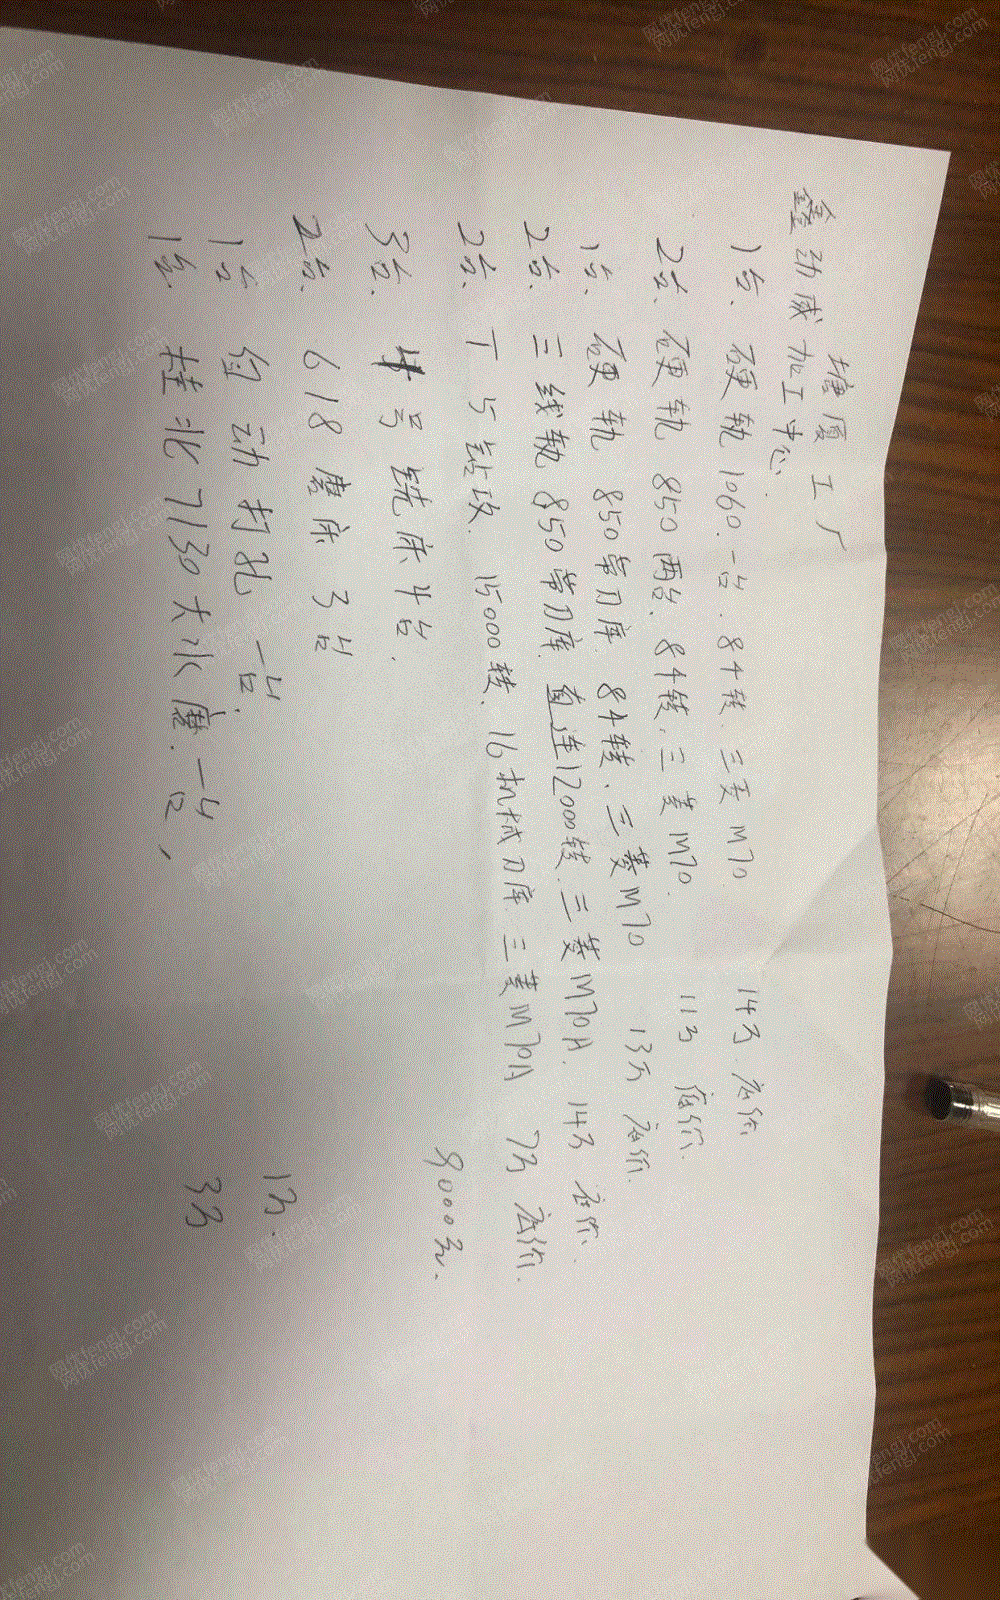 塘厦工厂
鑫劲威加工中心
1台. 硬轨1060.一台. 84转. 三麦M70 14万 底价.
2台. 硬轨 850 两台. 84转. 三菱M70. 11万 底价.
1台. 硬轨 850带刀库. 84转. 三菱M70 13万 底价.
2台. 三线轨 850带刀库. 直连12000转. 三菱M70A. 14万 底价.
2台. T5钻攻. 15000转. 16机械刀库. 三菱M70A 7万 底价.
3台. 4号铣床4台. 9000元.
2台. 618磨床 3台
1台 自动打孔一台. 1万.
1台. 桂北7130大水磨.一台, 3万
网优fengj.com